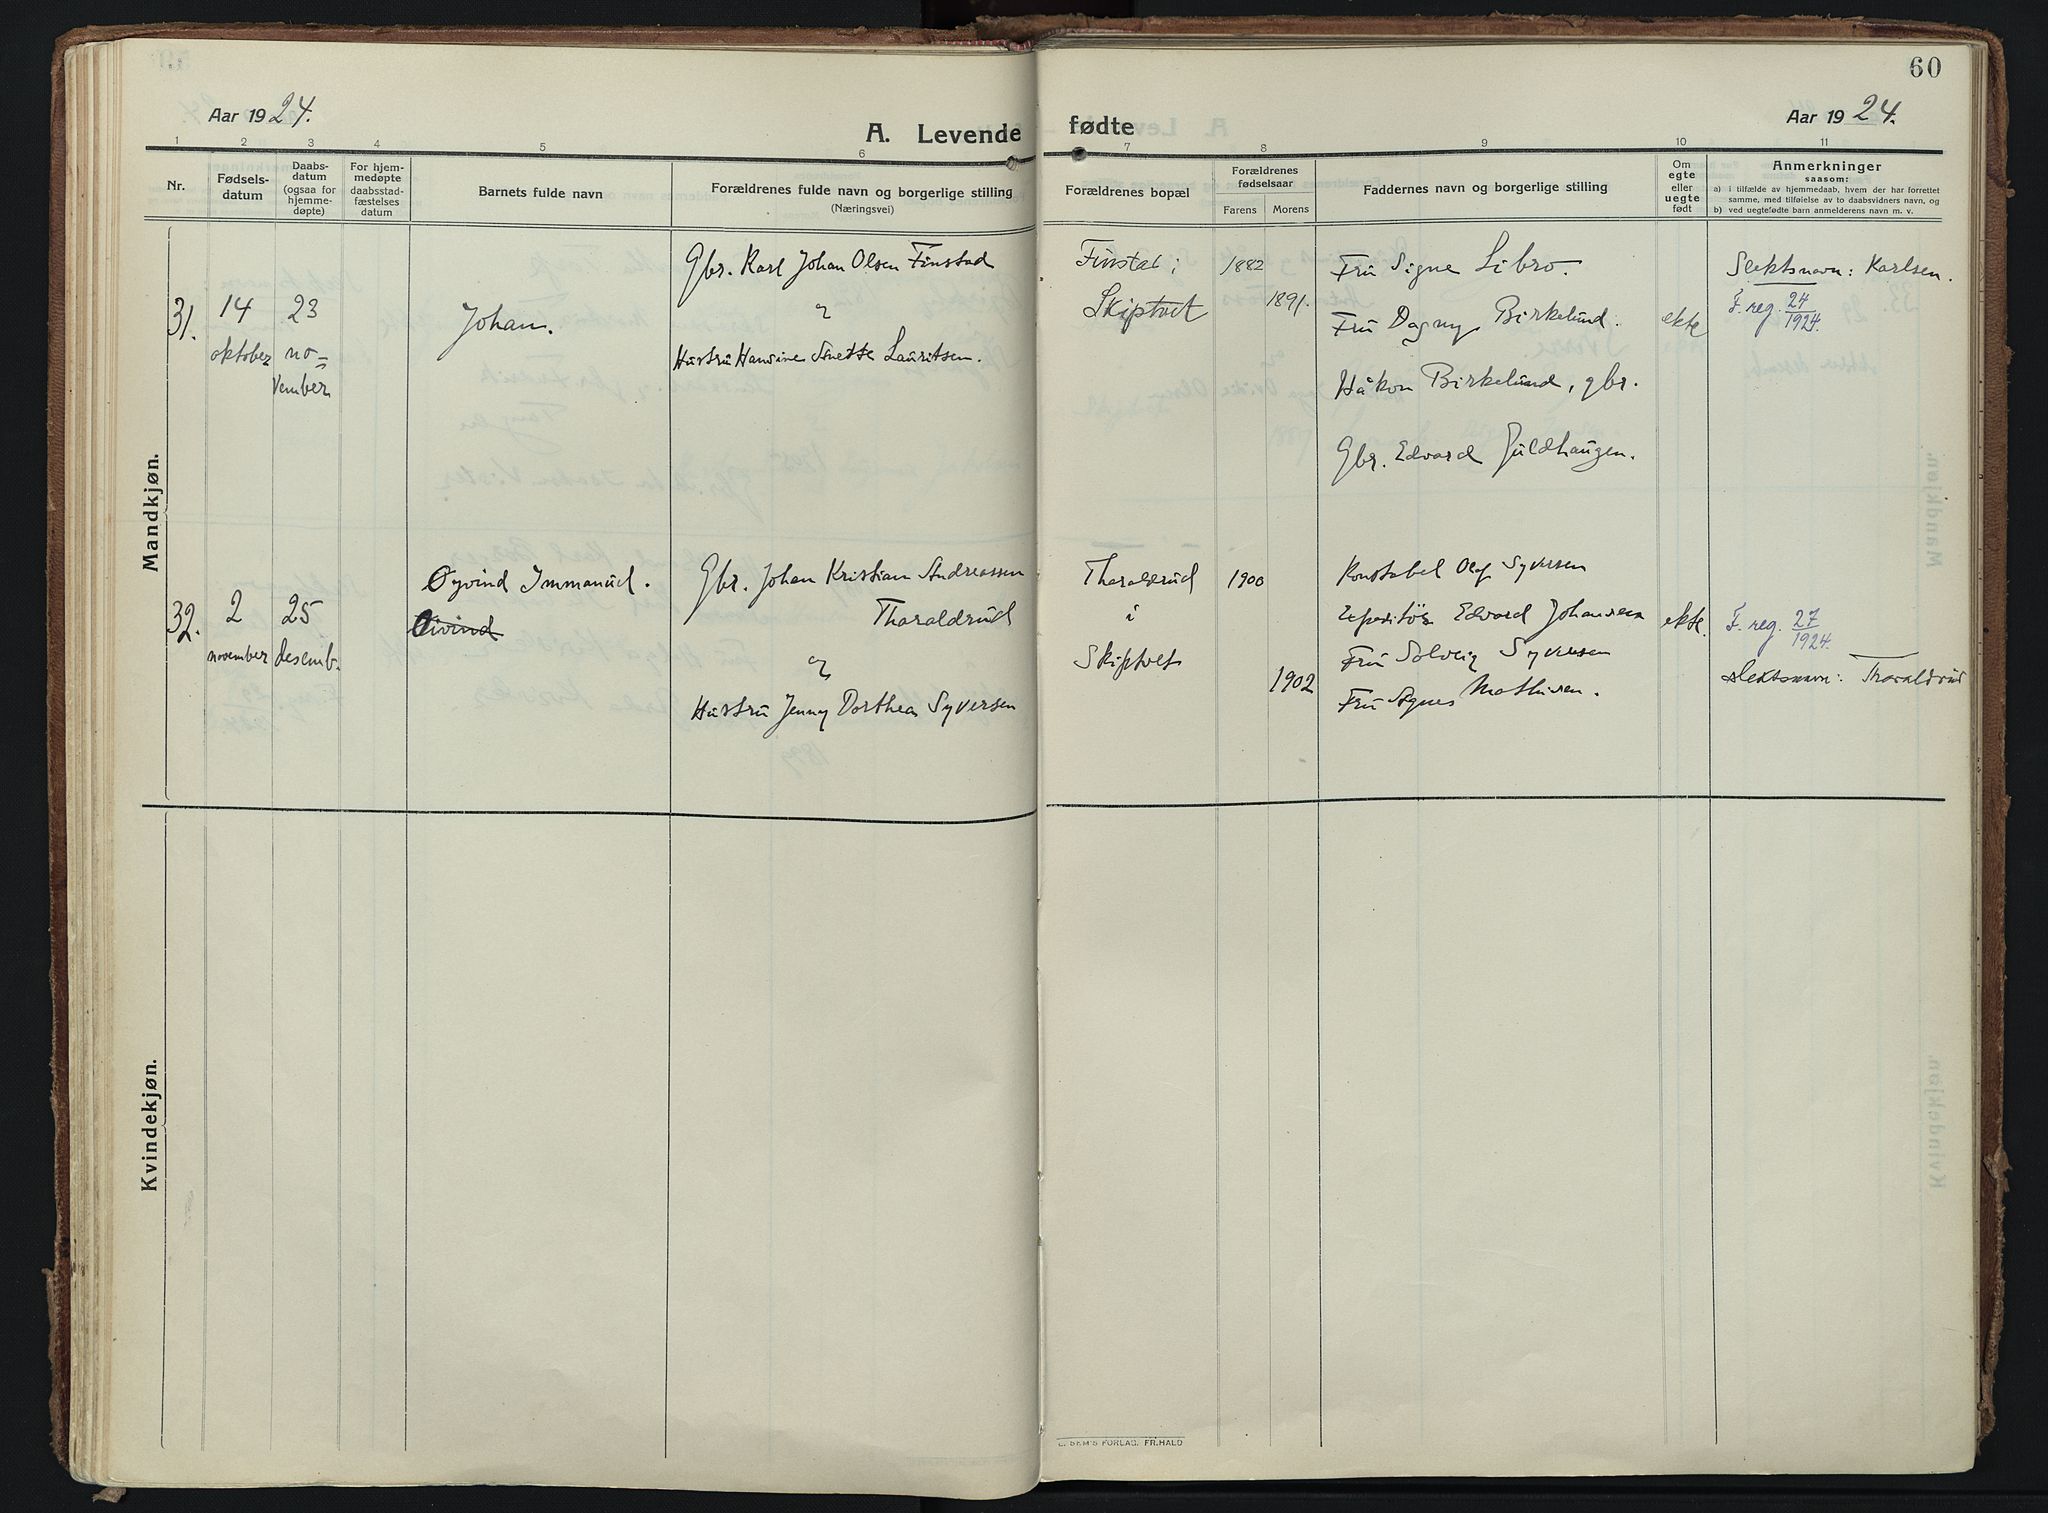 60
Aar 1924.
A. Levende fødte
Aar 1924.
1 2 3 4 5 6 7 8 9 10 11
Nr.
Fødsels-
datum
Daabs-
datum
(ogsaa for
hjemme-
døpte)
For hjem-
medøpte
daabsstad-
fæstelses
datum
Barnets fulde navn
Forældrenes fulde navn og borgerlige stilling
(Næringsvei)
Forældrenes bopæl
Forældrenes
fødselsaar
Farens Morens
Faddernes navn og borgerlige stilling
Om
egte
eller
uegte
født
Anmerkninger
saasom:
a) i tilfælde av hjemmedaab, hvem der har forrettet
samme, med tilføielse av to daabsvidners navn, og
b) ved uegtefødte barn anmelderens navn m. v.
Mandkjøn.
31.
14
oktober
23
no=
vember
Johan.
Gbr. Karl Johan Olsen Finstad
og
Hustru Hansine Anette Lauritsen.
Finstad i
Skiptvet
1882
1891.
Fru Signe Libro.
Fru Dagny Birkelund.
Håkon Birkelund, gbr.
Gbr. Edvard Guldhaugen.
ekte
Slektsnavn: Karlsen.
F. reg. 24
1924.
32.
2
november
25
desemb.
Øyvind Immanuel.
Øivind
Gbr. Johan Kristian Andreassen
Tharaldrud
og
Hustru Jenny Dorthea Syversen
Tharaldrud
i
Skiptvet
1900
1902
Konstabel Olaf Syversen
Edvard Johansen
Fru Solveig Syversen
Fru Agnes Mathisen.
ekte.
F. reg. 27
1924.
slektsnavn: Tharaldrud
Kvindekjøn.
E. SEM'S FORLAG, FR.HALD